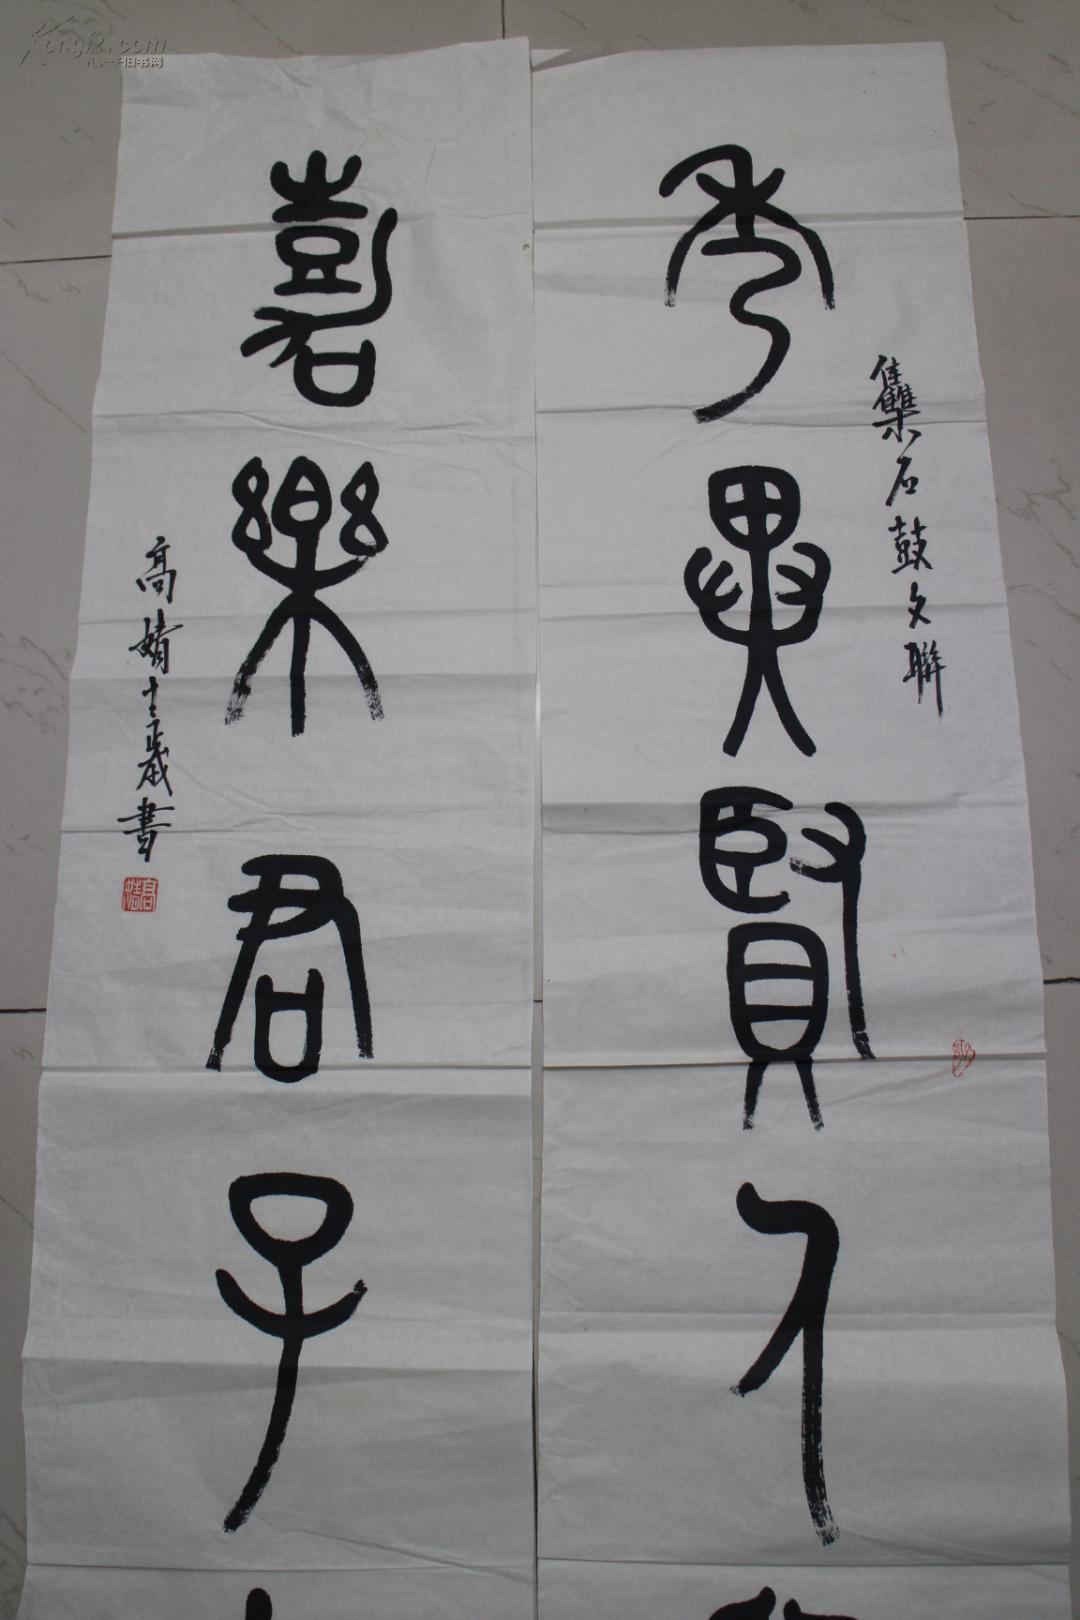 Kongfz.com
孔夫子旧书网
集石鼓文聯
秀異賢人
嘉樂君子
高婧十歲書
高婧